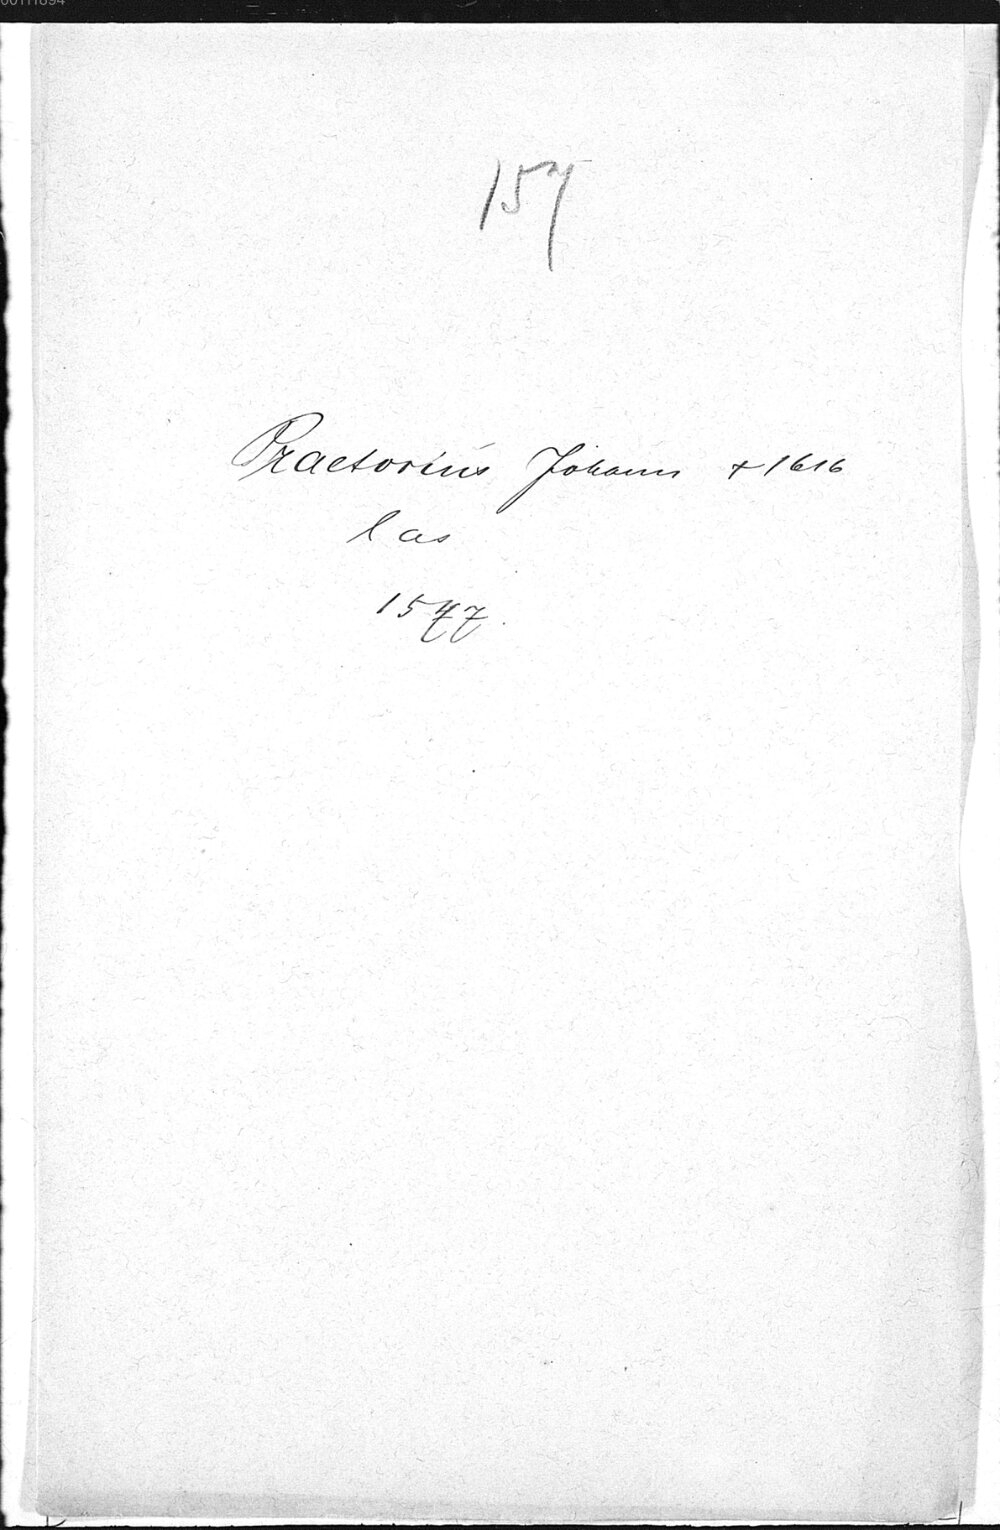 157
Praetorius Johann + 1616
las
1577.